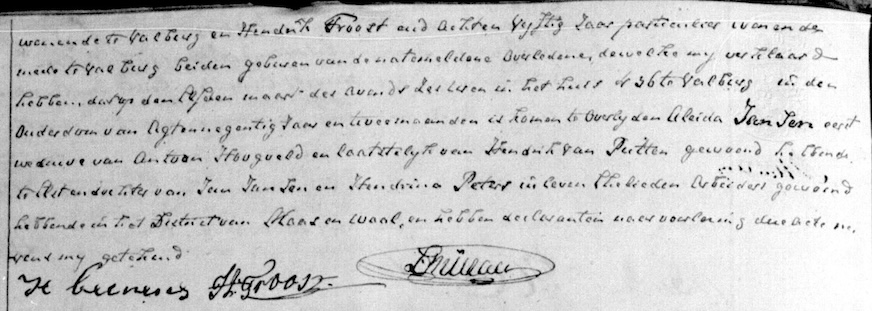 wonende te Valburg en Hendrik Troost oud Achten Vyftig Jaar particulier wonende
mede te Valburg beiden geburen van de natemeldene Overledene, dewelke my verklaard
hebben, dat op den maart des avonds Zes uren in het huis N 36 te Valburg in den
Ouderdom van Agtennegentig Jaar en twee maanden is komen te Overlyden Aleida Jansen eerst
weduwe van Antoon Hougveld en laatstelyk van Hendrik van Putten gewoond hebbende
te dochter van Jan Jansen en Hendrina Peters in leven Ehelieden Arbeiders gewoond
hebbende in het District van Maas en Waal, en hebben declaranten naar voorlezing deze acte ne
vens my getekend
H H Troost